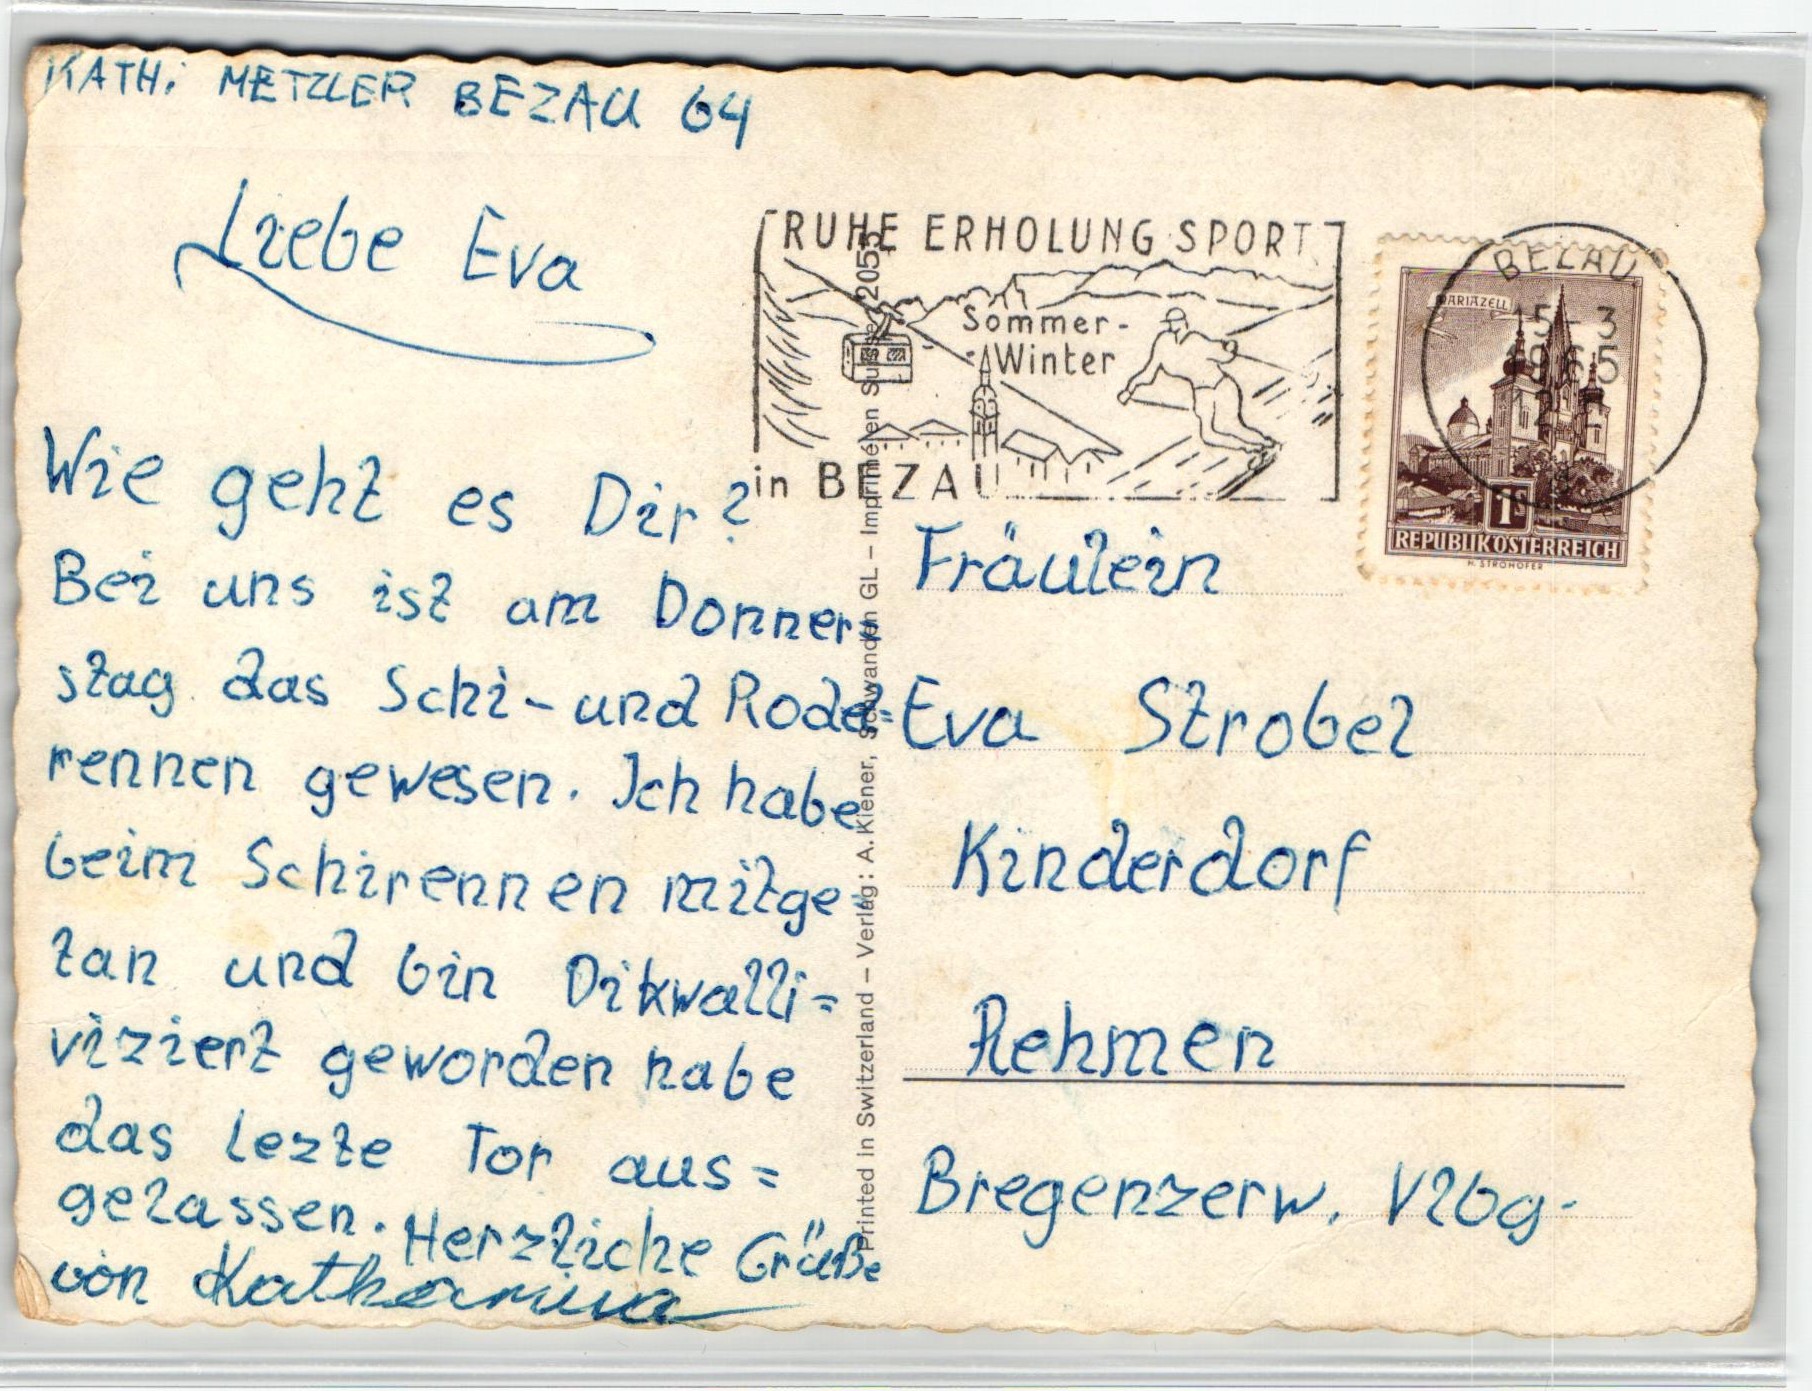 KATH. METZLER BEZAU 64
Liebe Eva
Wie geht es Dir?
Bei uns ist am Donner=
stag das Schi- und Rode=
rennen gewesen. Ich habe
beim Schirennen mitge=
tan und bin Dikwalli=
viziert geworden habe
das lezte Tor aus=
gelassen. Herzliche Grüße
von Katharina
RUHE ERHOLUNG SPORT
Sommer-
-Winter
in BEZAU
BEZAU
15 3
1965
MARIAZELL
1S
REPUBLIK ÖSTERREICH
H. STROHOFER
Fräulein
Eva Strobel
Kinderdorf
Rehmen
Bregenzerw. Vlbg.
Printed in Switzerland – Verlag: A. Kiener, Schwanden GL – Imprimé en Suisse 12055